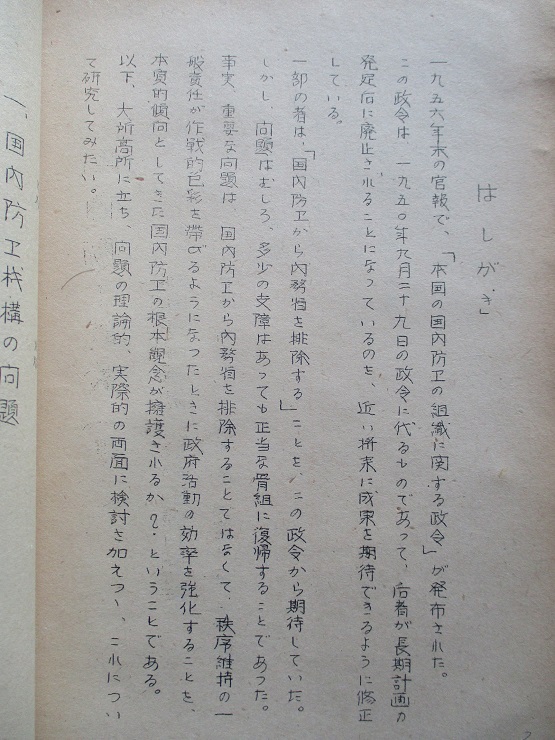 はしがき
一九五六年末の官報で、「本国の国内防卫の組織に関する政令」が発布された。
この政令は、一九五〇年九月二十九日の政令に代るものであって、后者が長期計画の
発足后に廃止されることになっているのを、近い将来に成果を期待できるように修正
している。
一部の者は、「国内防卫から内務省を排除する」ことを、この政令から期待していた。
しかし、问題はむしろ、多少の支障はあっても正当な骨組に復帰することであつた。
事実、重要な问題は、国内防卫から内務省を排除することではなくて、秩序維持の一
般責任が作戦的色彩を帯びるようになつたときに政府活動の効率を強化することを、
本質的傾向としてきた国内防卫の根本観念が擁護されるか?.ということである。
以下、大所高所に立ち、问題の理論的、実際的の両面に検討を加えつゝ、これについ
て研究してみたい。
一、国内防卫机構の问題